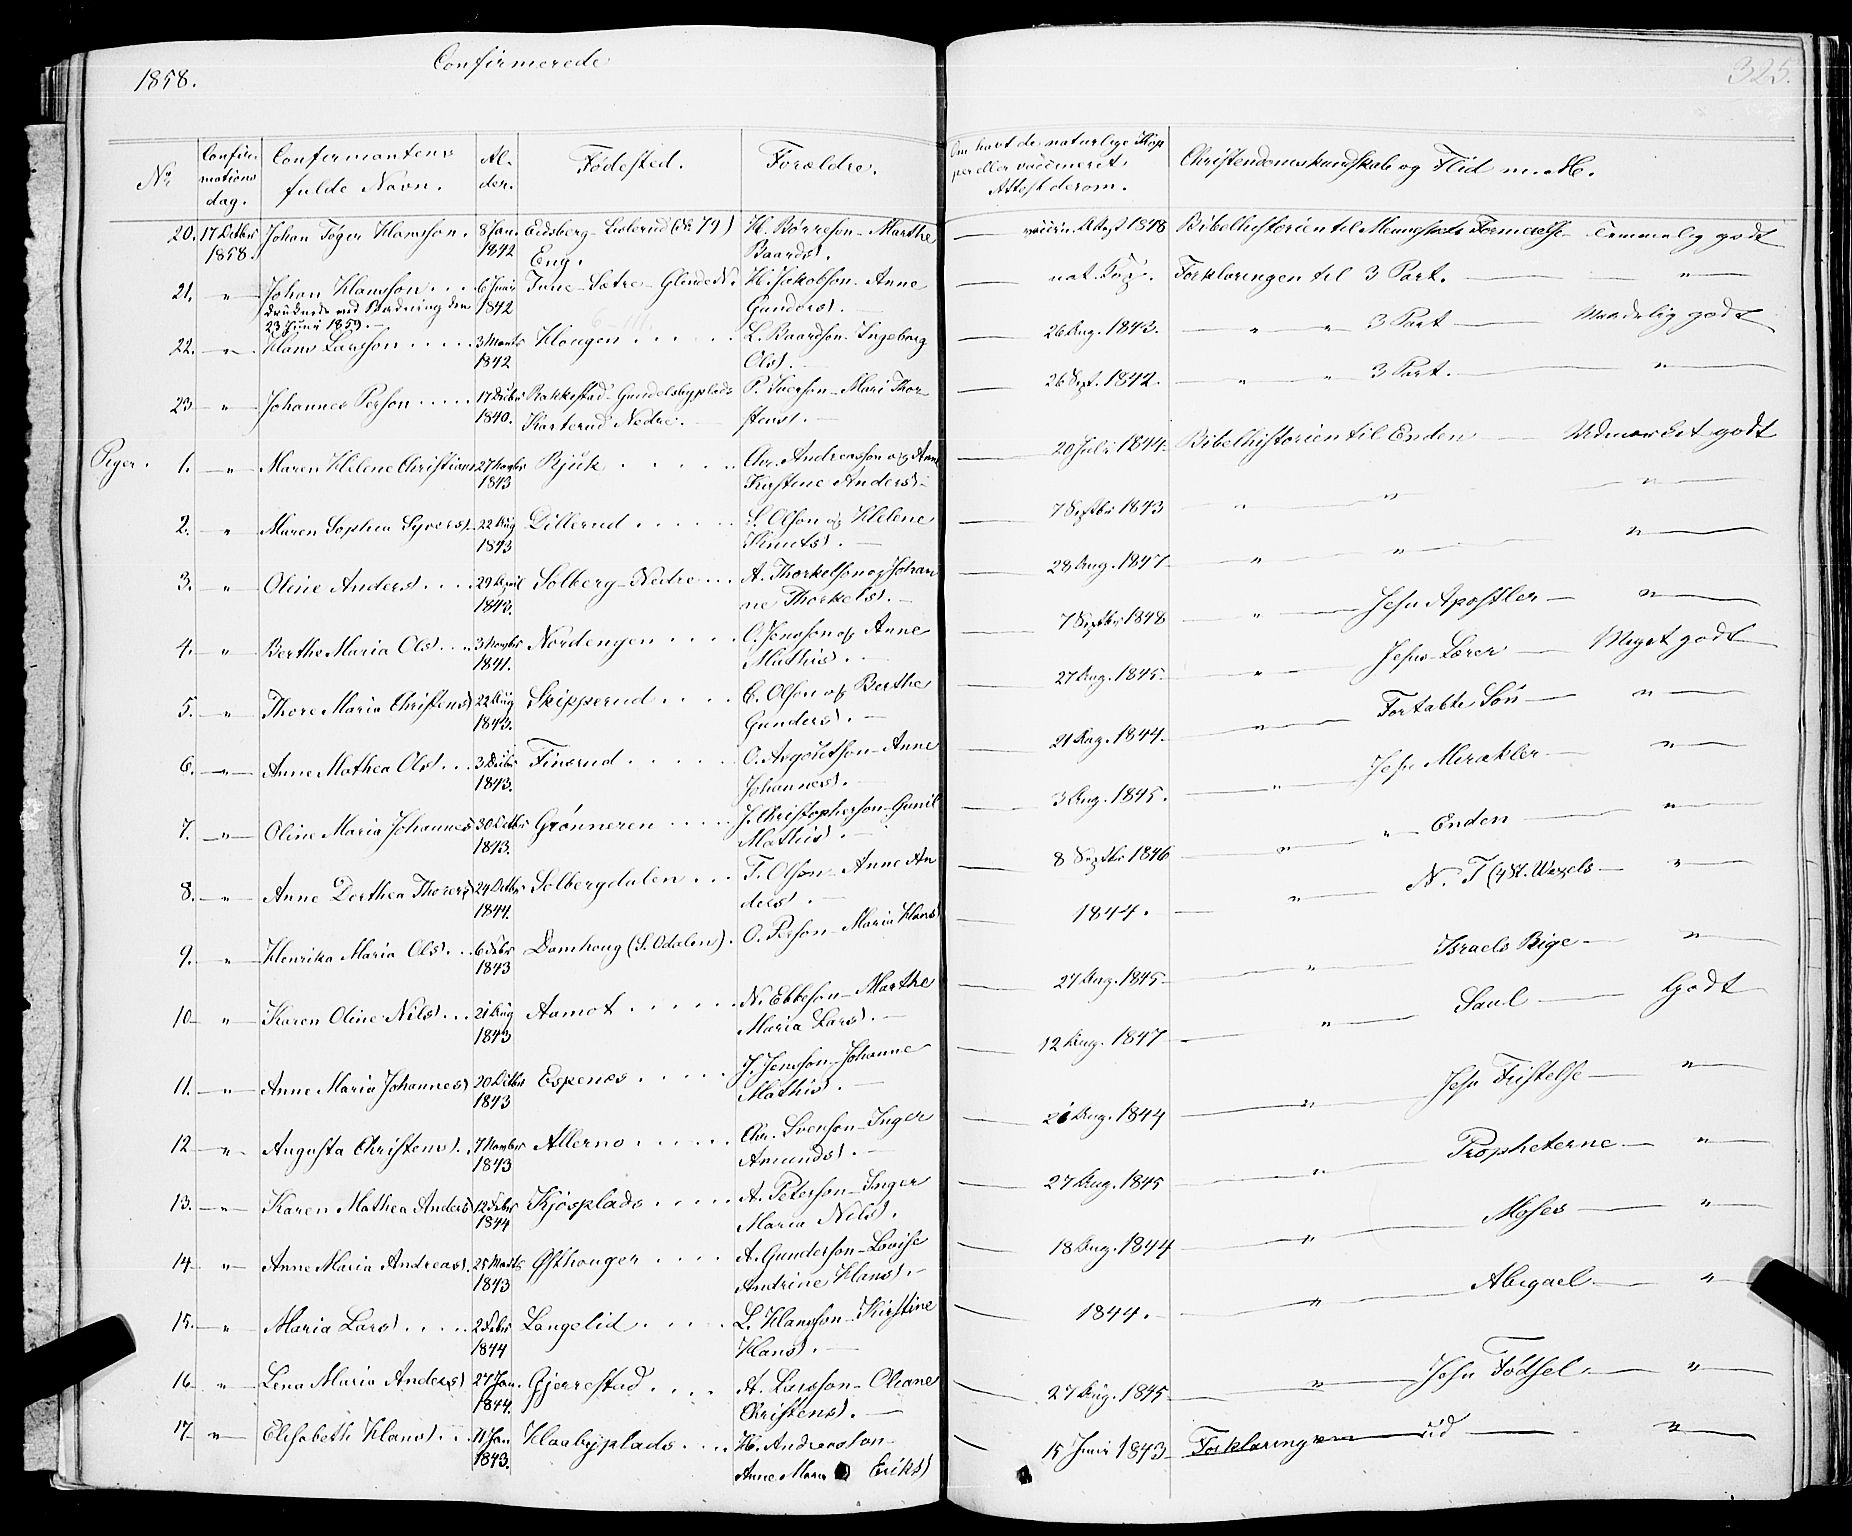 1858.
Confirmerede
325.
No
Confir-
mations
dag.
Confirmantens
fulde Navn.
Al-
der.
Fødested.
Forældre.
Om havt de naturlige Kop
per eller vaccineret.
Attest derom.
Christendomskundskab og Flid m. M.
20. 17 Octbr 1858. Johan Tøger Hansson. 8 Jan. 1842 Eidsberg - Lislerud (N: 79) Eng. H. Børreson - Marthe Baardsd. — vaccin. Attest 1848 Bibelhistorien til Temmelig godt
21. " Johan Hansson . . . 6 Juni 1842 Tune - Sætre - H. Jakobson - Anne Gundersd. — nat. Forklaringen til 3 Part. — "
druknede ved Badning den
23 Juni 1859. —
22. " Hans Larsson . . . . . 3 Marts 1842 Hougen . . . . . . L. Baardson - Ingeborg Olsd. — 26 Aug. 1843. — " — " 3 Part — Maadelig godt
23 — " — Johannes Person . . . . . 17 Decbr 1840. Rakkestad - Gundelsbyplads Karterud Nedre. — P. Iverson - Mari Thorstensd. — 26 Sept. 1842. — " " 3 Part. — "
Piger. 1. — " — Maren Helene Christians 27 Novbr 1843 Rjuk . . . . . . Chr. Andreasson og Anne Kirstine Andersd — 20 Juli 1844. Bibelhistorien til Enden — Udmærket godt
2. " Maren Sophia Syversd. 22 Aug 1843 Dillerud . . . . . . S. Olson og Helene Knutsd. — 7 Septbr 1843 " — " — "
3. " Oline Andersd . . . . 29 April 1843. Solberg - Nedre . . . A. Thorkelson og Johanne Thorkelsd. — 28 Aug. 1847 — " — " — "
4. " Berthe Maria Olsd . . . 3 Novbr 1841. Nordengen . . . . O. Jensson og Anne Mathisd. — 7 Septbr 1848 " — Jesu Apostler — "
5. — " — Thore Maria Christensd 22 Aug 1843. Skipperud . . . . C. Olson og Berthe Gundersd. — 27 Aug. 1845. " Jesus Lærer — Meget godt
6. — " — Anne Mathea Olsd . . . 3 Decbr 1843. Finsrud . . . . . . O. Anne Johannesd. — 21 Aug. 1844. — " — Fortabte Søn — "
7. — " — Oline Maria Johannesd 30 Octbr 1843. Grønneren . . . . . J. Christopherson - Gunil Mathisd. — 3 Aug. 1845. — " — Jesu Mirakler — "
8. — " — Anne Dorthea Thoresd 24 Octbr 1844. Solbergdalen . . . T. Olson - Anne Andersd. — 8 Septbr 1846 — " — " — Enden — "
9. — " — Henrika Maria Olsd . . 6 Febr 1843 Damhoug (S. Odalen) . O. Person - Maria Hansd — 1844. — " — N. T (4 St. Wexels — "
10 — " — Karen Oline Nilsd . . . 21 Aug 1843 Aamot . . . . . . N. Ebbeson - Marthe Maria Larsd. — 27 Aug. 1845 — " Israels Rige — "
11. — " — Anne Maria Johannesd 20 Octbr 1843 Espenes . . . . . J. Jensson - Johanne Mathisd. — 12 Aug. 1847 — " Saul — Godt
12 — " — Augusta Christensd. . 7 Novmbr 1843 Allerno . . . . . Chr. Svenson - Inger Amundsd. — 21 Aug. 1844 — " — Jesu Fristelse — "
13. — " — Karen Mathea Andersd 12 Febr 1844 Kjosplads . . . . . A. Peterson - Inger Maria Nilsd. 27 Aug. 1845 — " — Propheterne — "
14 — " — Anne Maria Andreasd. 25 Marts 1843 Østhouger . . . . A. Gunderson - Lovise Andrine Hansd. — 18 Aug. 1844 — " — Moses — "
15. — " Maria Larsd . . . . . 2 Febr 1844 Langelid . . . . . L. Hansson - Kirstine Hansd. — 1844. — " — Abigael — "
16 " Lena Maria Andersd 27 Jan. 1844. Gjerrestad . . . . A. Larsson - Oleane Christensd. — 27 Aug. 1845 — " — Jesu Fødsel — "
17 — " — Elisabeth Hansd . . . 11 Jan 1843. Haabyplads . . . . H. Andreasson - Anne Maria Eriksd 15 Juni 1843 — Forklaringen ud — "